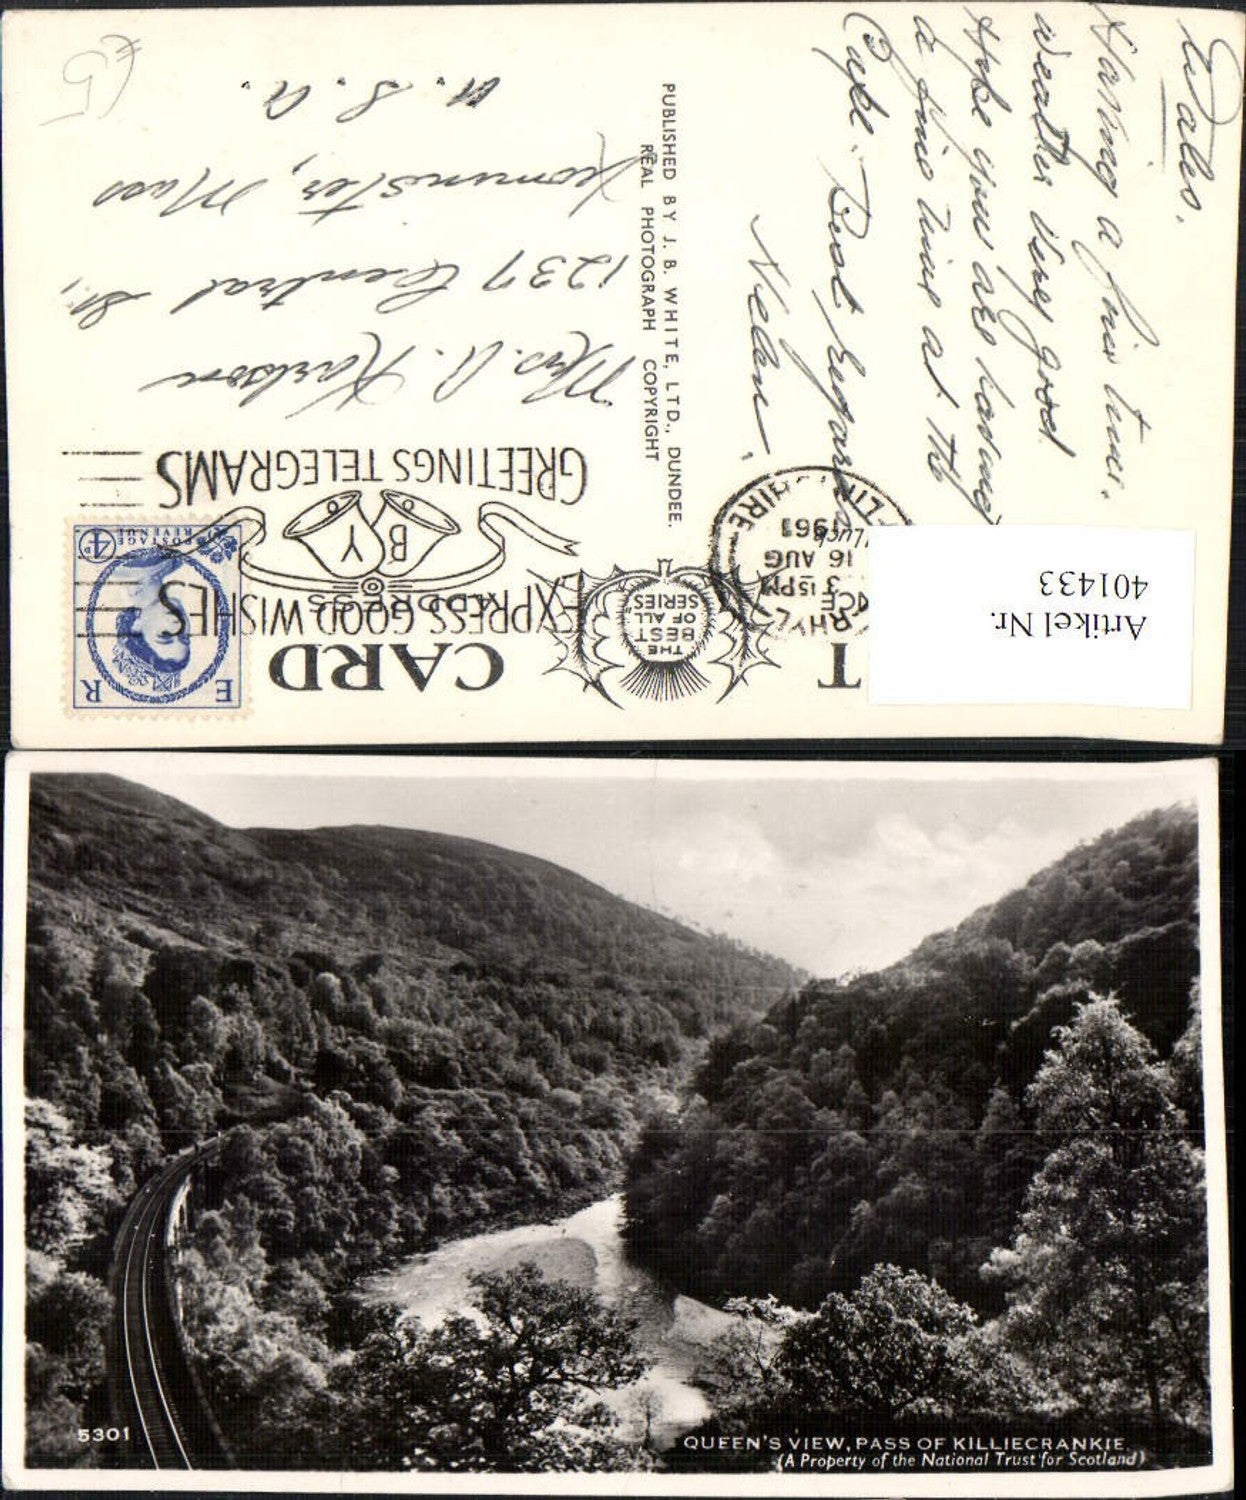 £5
Wales.
Having a fine time.
Weather very good
Hope you are having
a fine time at the
Cape. Best Regards
Helen.
PUBLISHED BY J. B. WHITE, LTD., DUNDEE.
REAL PHOTOGRAPH COPYRIGHT
Mrs. A. Karlson
1237 Central St.,
Leominster, Mass
U. S. A.
T CARD
THE
BEST
OF ALL
SERIES
RHYL
3 15PM
16 AUG
1961
FLINTSHIRE
EXPRESS GOOD WISHES
BY
GREETINGS TELEGRAMS
E R
POSTAGE
REVENUE
4D
Artikel Nr.
401433
5301
QUEEN'S VIEW, PASS OF KILLIECRANKIE
(A Property of the National Trust for Scotland)